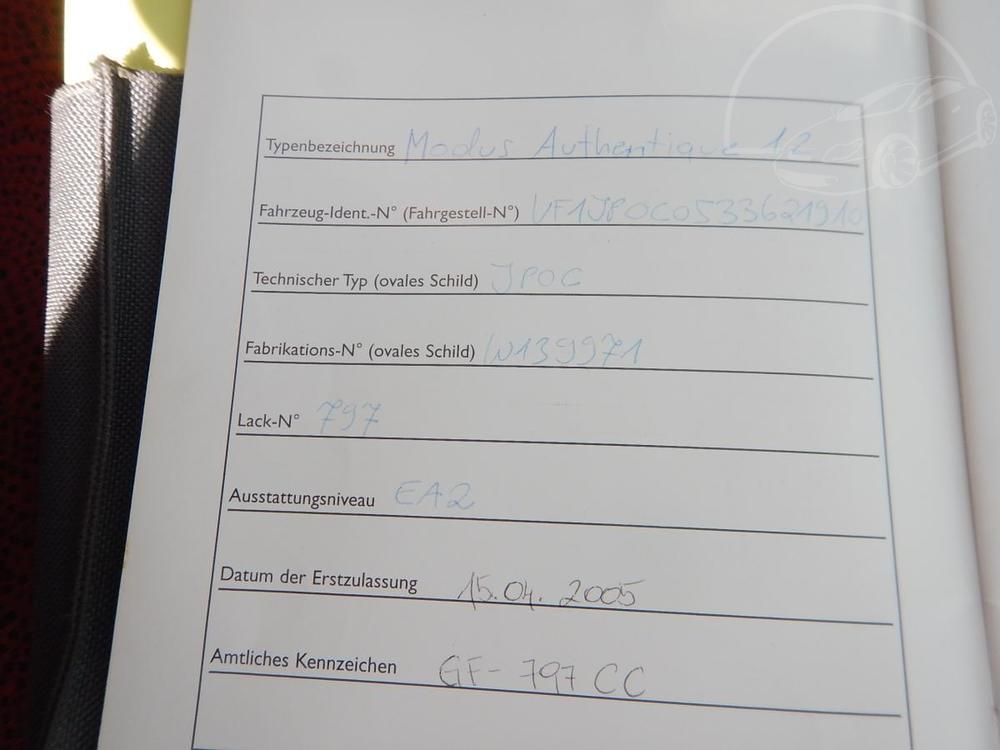 Typenbezeichnung Modus Authentique 1,2
Fahrzeug-Ident.-N° (Fahrgestell-N°) VF1JP0C0533621910
Technischer Typ (ovales Schild) JP0C
Fabrikations-N° (ovales Schild) W139971
Lack-N° 797
Ausstattungsniveau EA2
Datum der Erstzulassung 15.04.2005
Amtliches Kennzeichen GF-797 CC